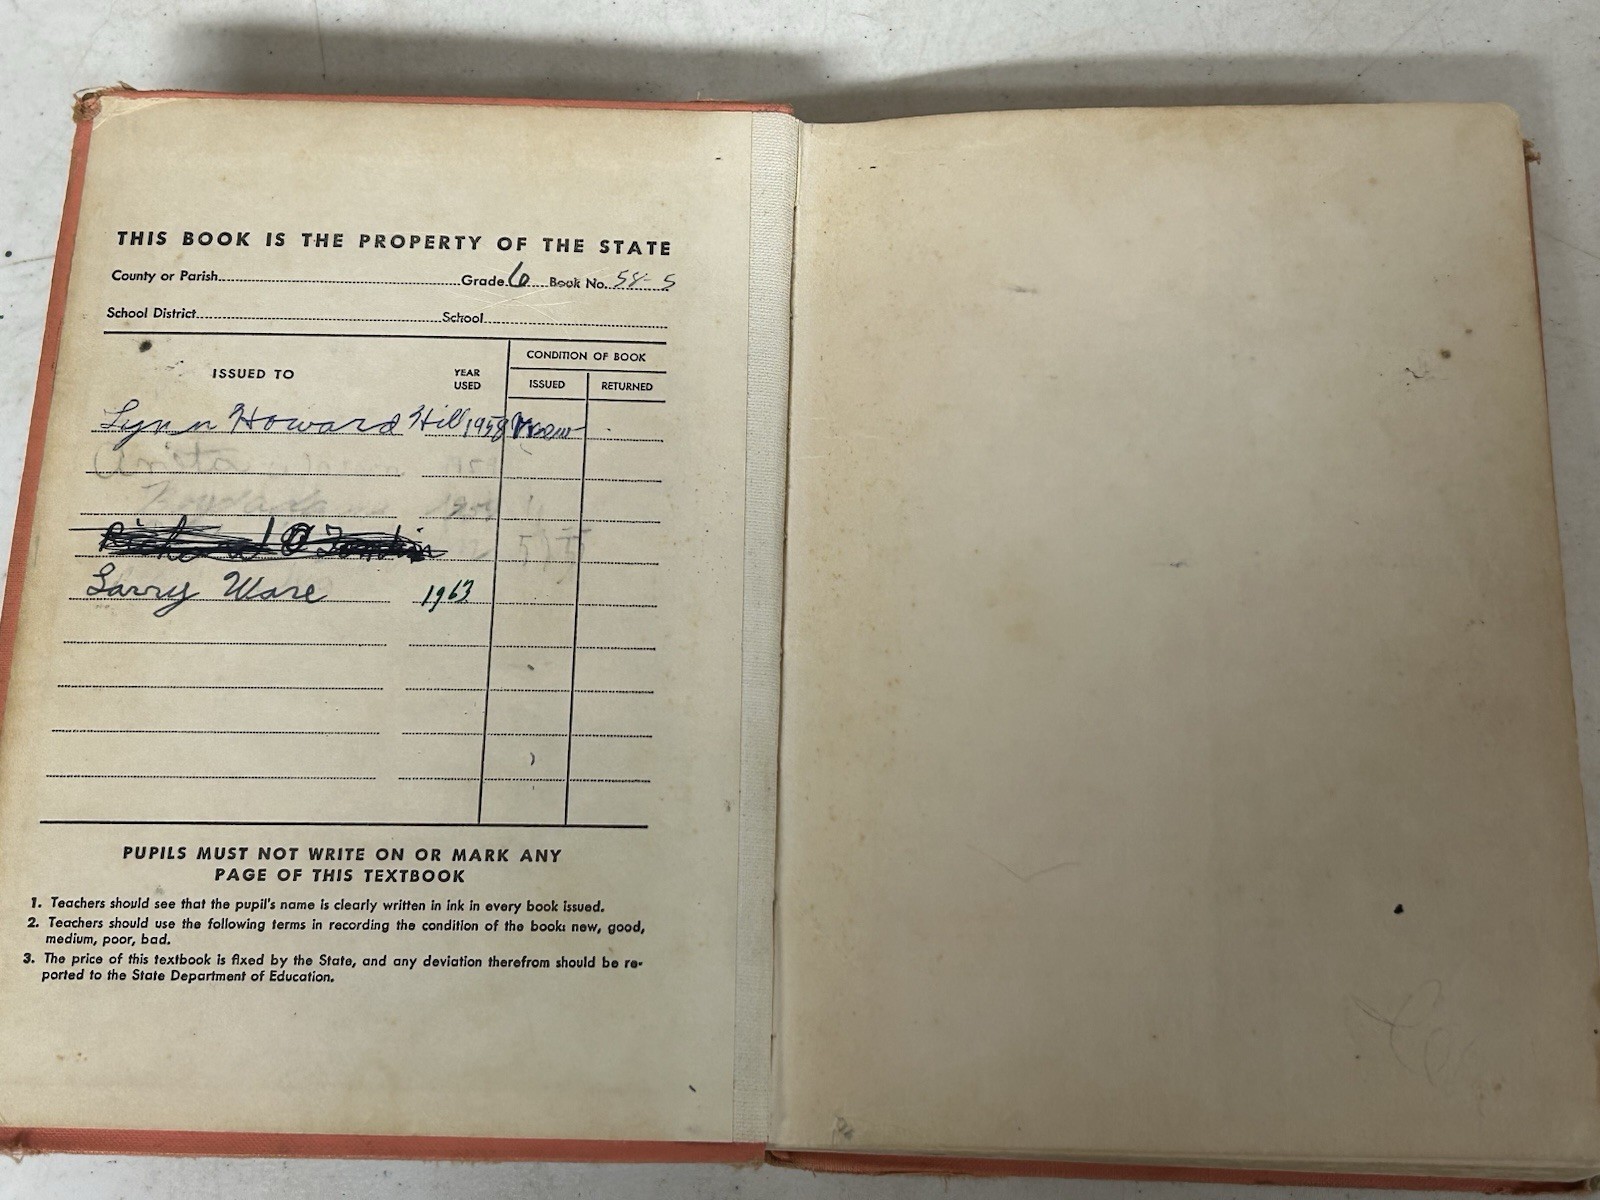 THIS BOOK IS THE PROPERTY OF THE STATE
County or Parish Grade 6 Book No. 58-5
School District School
CONDITION OF BOOK
ISSUED TO YEAR USED ISSUED RETURNED
Lynn Howard Hill 1958 new
Richard
Larry Ware 1963
PUPILS MUST NOT WRITE ON OR MARK ANY
PAGE OF THIS TEXTBOOK
1. Teachers should see that the pupil's name is clearly written in ink in every book issued.
2. Teachers should use the following terms in recording the condition of the book: new, good,
medium, poor, bad.
3. The price of this textbook is fixed by the State, and any deviation therefrom should be re-
ported to the State Department of Education.